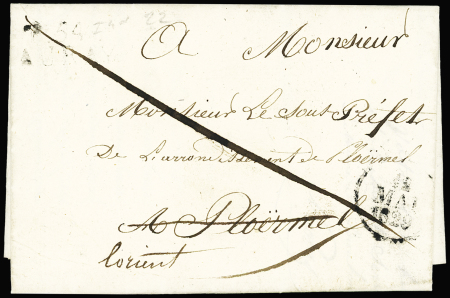 A Monsieur
Monsieur Le Sous Préfet
De L'arrondissement de Ploërmel
A Ploërmel
MAI
lorient